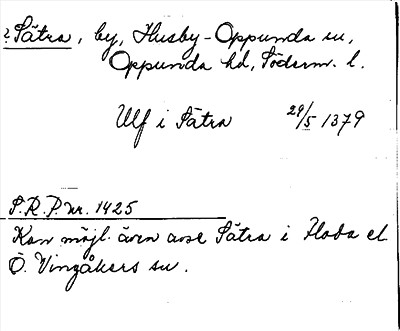 ? Sätra, by, Husby-Oppunda sn,
Oppunda hd, Söderm. l.
Ulf i Sätra 29/5 1379
S.R.P. nr. 1425
Kan möjl. även avse Sätra i Floda el.
Ö. Vingåkers sn.